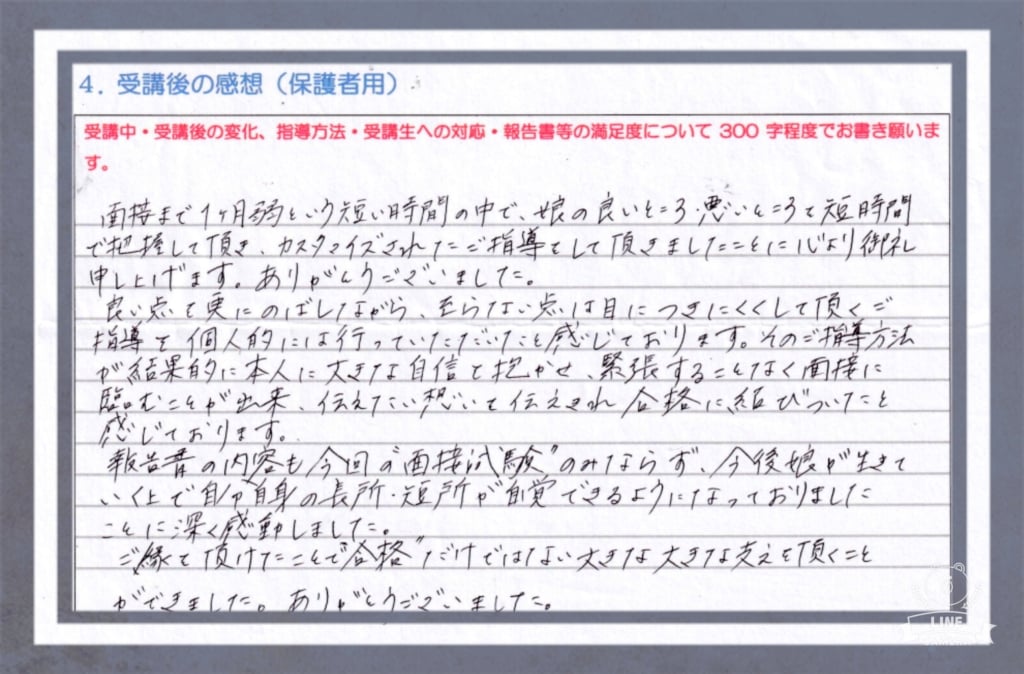 4．受講後の感想（保護者用）
受講中・受講後の変化、指導方法・受講生への対応・報告書等の満足度について 300 字程度でお書き願いま
す。
面接まで1ヶ月弱という短い時間の中で、娘の良いところ・悪いところを短時間
で把握して頂き、カスタマイズされたご指導をして頂きましたことに心より御礼
申し上げます。ありがとうございました。
良い点を更にのばしながら、至らない点は目につきにくくして頂くご
指導を個人的には行っていただいたと感じております。そのご指導方法
が結果的に本人に大きな自信を抱かせ、緊張することなく面接に
臨むことが出来、伝えたい想いを伝えきれ合格に結びついたと
感じております。
報告書の内容も今回の"面接試験"のみならず、今後娘が生きて
いく上で自分自身の長所・短所が自覚できるようになっておりました
ことに深く感動しました。
ご縁を頂けたことで"合格"だけではない大きな大きな支えを頂くこと
ができました。ありがとうございました。
LINE